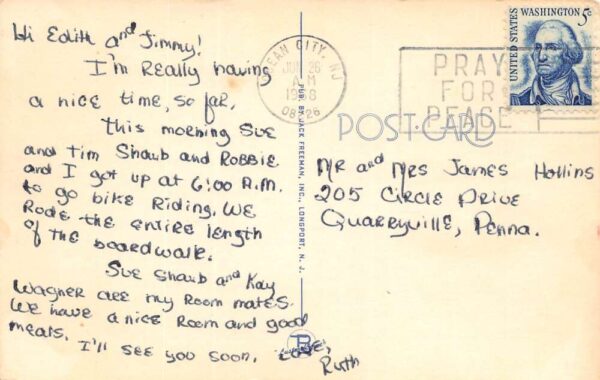 Hi Edith and Jimmy!
I'm Really having
a nice time, so far.
This morning Sue
and Tim Shaub and Robbie
and I got up at 6:00 A.M.
to go bike Riding. We
Rode the entire length
of the boardwalk.
Sue Shaub and Kay
Wagner are my Room mates.
We have a nice Room and good
meals.
I'll see you soon. Love,
Ruth
PUB. BY JACK FREEMAN, INC., LONGPORT, N. J.
OCEAN CITY, NJ
JUN 26
A M
PRAY
FOR
PEACE
UNITED STATES WASHINGTON 5¢
POST CARD
Mr and Mrs James Hollins
205 Circle Drive
Quarryville, Penna.